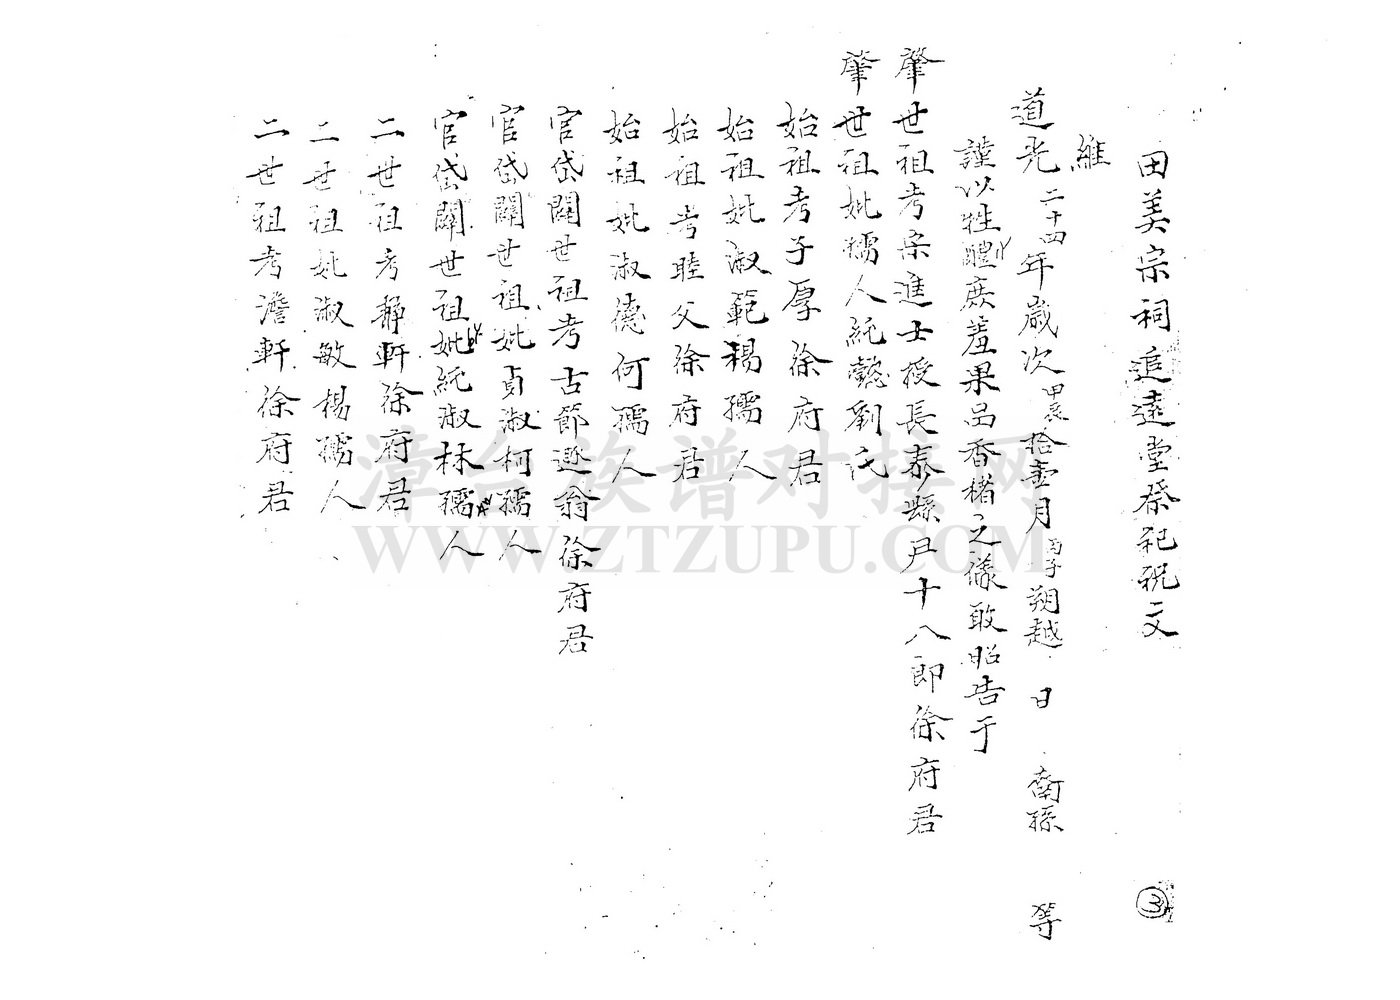 田美宗祠追遠堂祭祀祝文
維
道光二十四年歲次甲辰拾壹月丙子朔越 日 裔孫 等
謹以牲醴庶羞果品香楮之儀敢昭告于
肇世祖考宋進士授長泰縣尹十八郎徐府君
肇世祖妣孺人純懿劉氏
始祖考子厚徐府君
始祖妣淑範楊孺人
始祖考睦父徐府君
始祖妣淑德何孺人
官岱開世祖考古節遯翁徐府君
官岱開世祖妣貞淑柯孺人
官岱開世祖妣純淑林孺人
二世祖考靜軒徐府君
二世祖妣淑敏楊孺人
二世祖考澹軒徐府君
3
漳台族谱对接网
WWW.ZTZUPU.COM